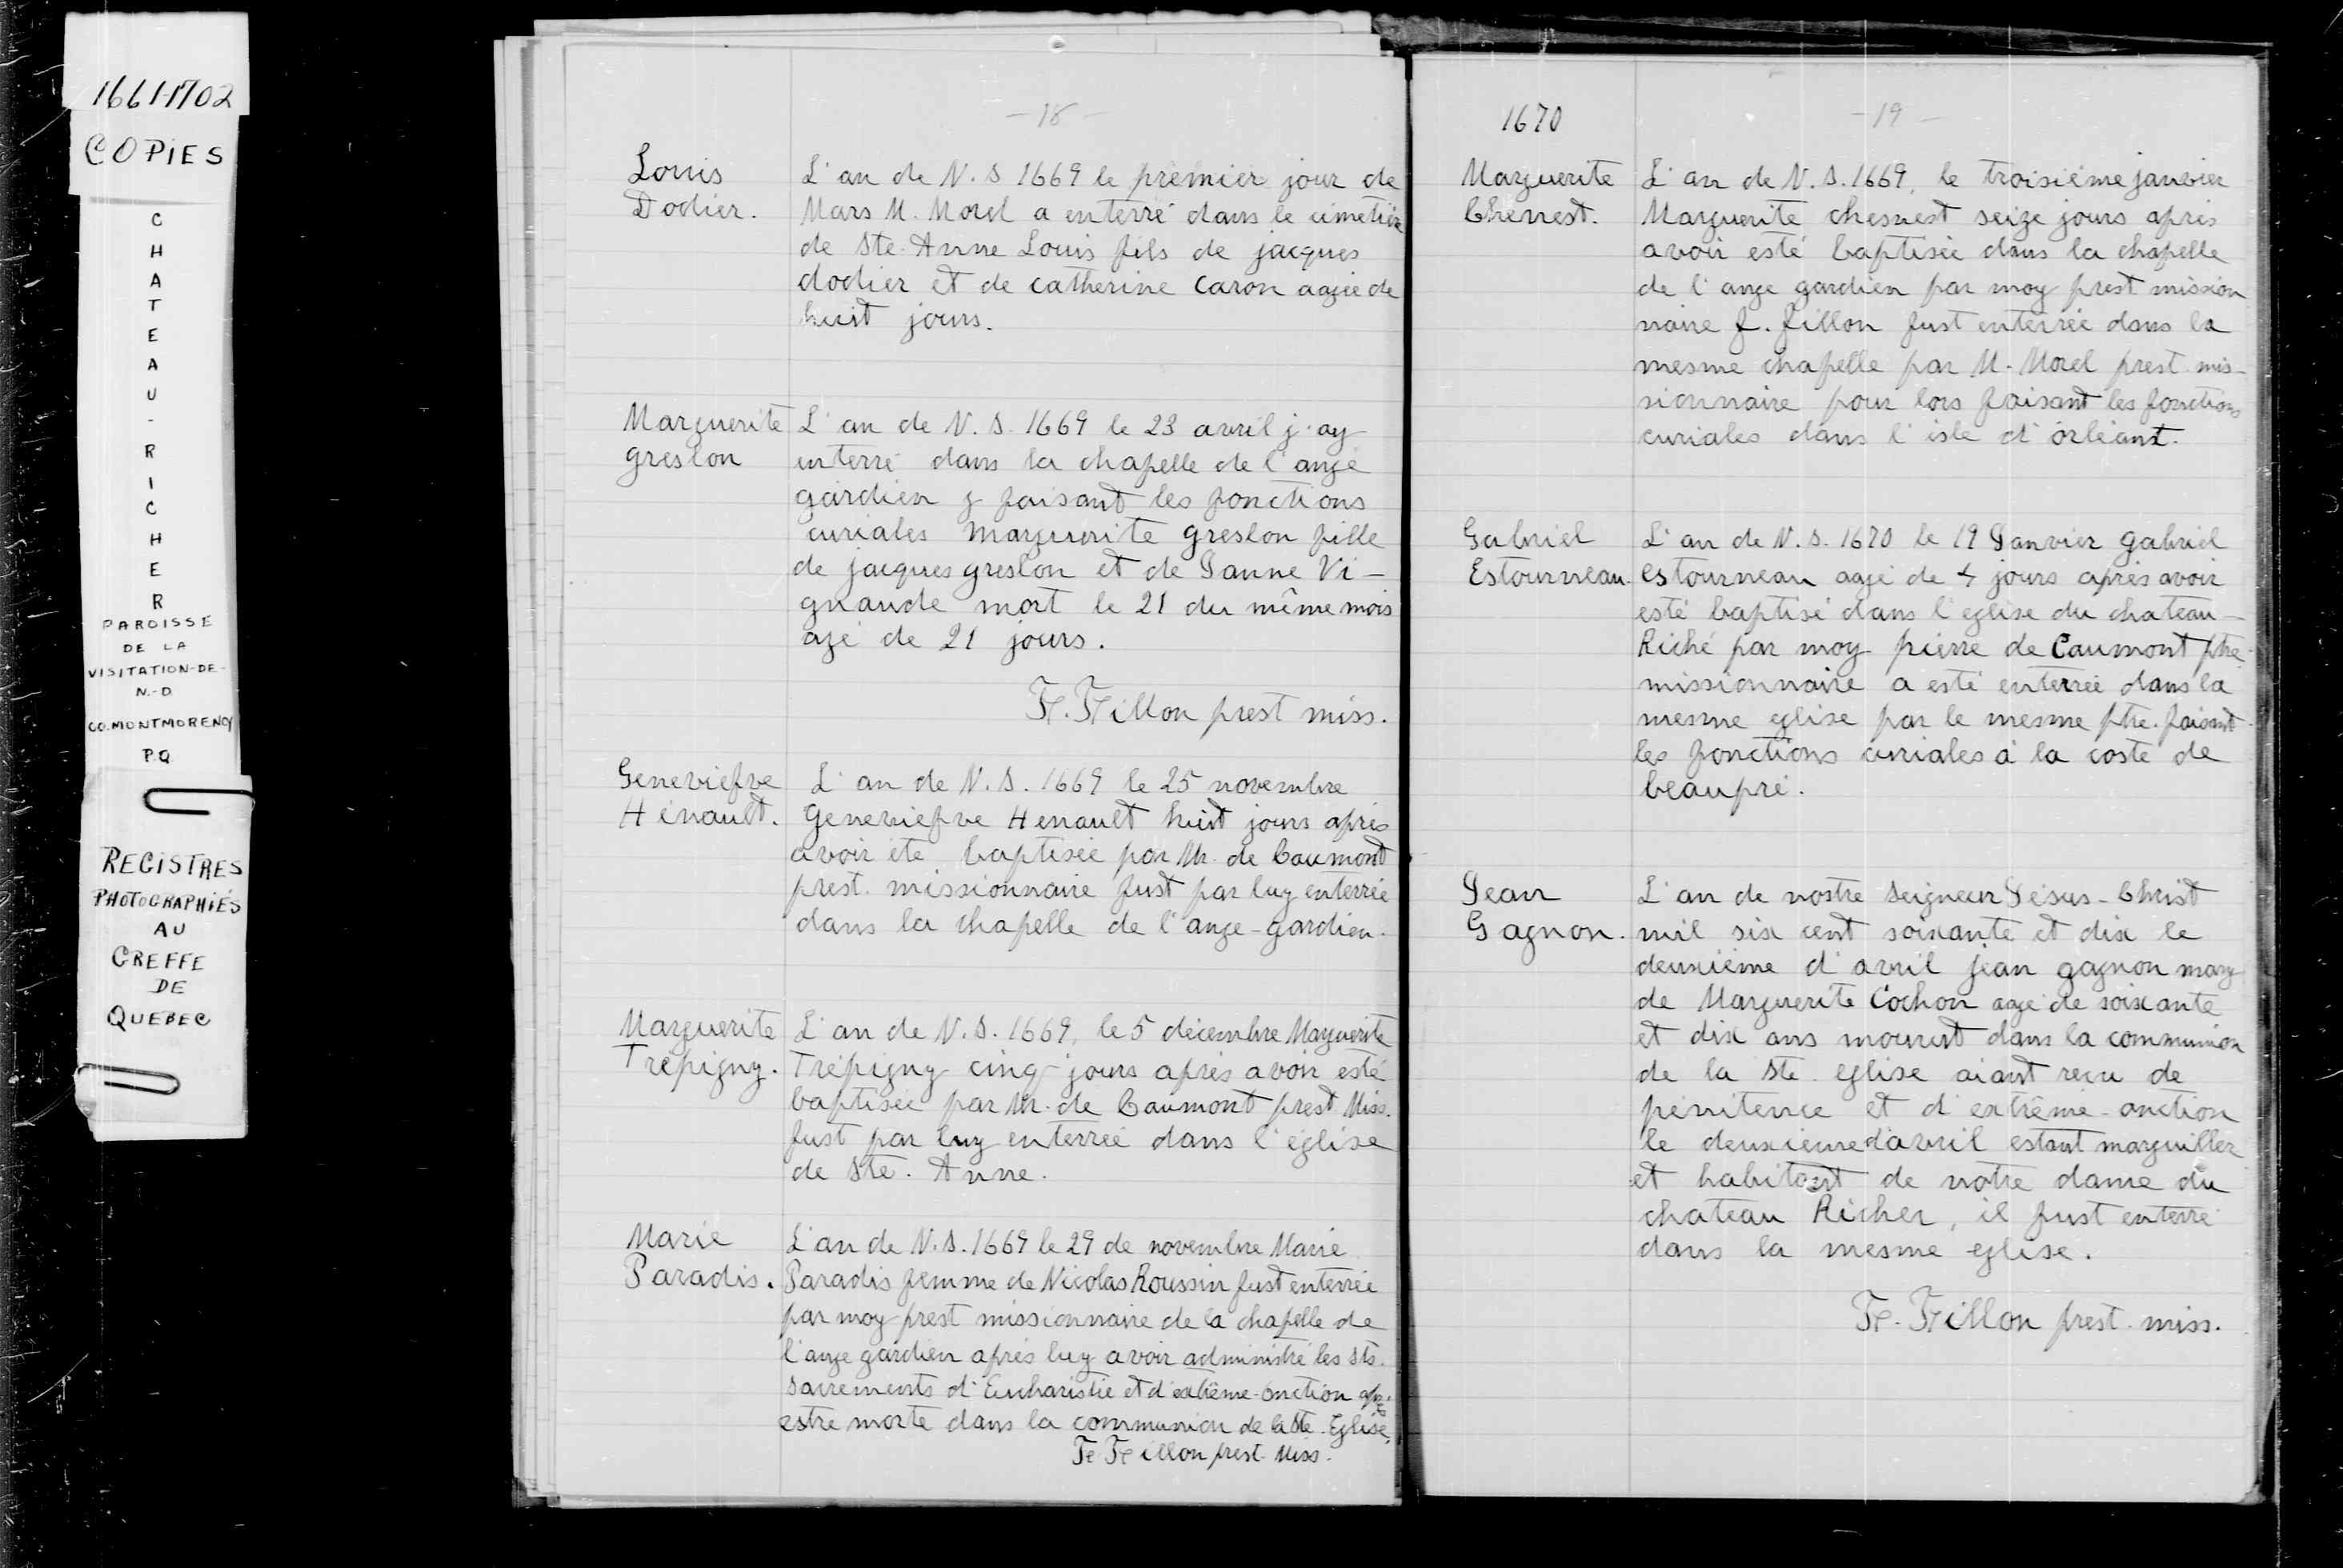 1661-1702
COPIES
C
H
A
T
E
A
U
-
R
I
C
H
E
R
PAROISSE
DE LA
VISITATION-DE-
N.-D
CO. MONTMORENCY
P.Q
REGISTRES
PHOTOGRAPHIÉS
AU
GREFFE
DE
QUEBEC
- 18 -
Louis
Dodier.
L'an de N. S 1669 le premier jour de
Mars M. Morel a enterré dans le cimetière
de Ste-Anne Louis fils de jacques
dodier et de catherine caron agée de
huit jours.
Marguerite
greslon
L'an de N. S. 1669 le 23 avril j'ay
enterré dans la chapelle de l'ange
gardien y faisant les fonctions
curiales marguerite greslon fille
de jacques greslon et de Janne Vi-
gnaude mort le 21 du même mois
agé de 21 jours.
F. Fillon prest miss.
Geneviefve
Hénault.
L'an de N. S. 1669 le 25 novembre
Geneviefve Henault huit jours après
avoir été baptisée par Mr. de Caumont
prest. missionnaire fust par luy enterrée
dans la chapelle de l'ange-gardien.
Marguerite
Trépigny.
L'an de N. S. 1669, le 5 décembre Marguerite
Trépigny cinq jours après avoir esté
baptisée par Mr. de Caumont prest Miss.
fust par luy enterrée dans l'église
de Ste. Anne.
Marie
Paradis.
L'an de N. S. 1669 le 29 de novembre Marie
Paradis femme de Nicolas Roussin fust enterrée
par moy prest missionnaire de la chapelle de
l'ange gardien après luy avoir administré les Sts.
Sacrements d'Eucharistie et d'extême-onction après
estre morte dans la communion de la Ste. Eglise,
F. Fillon prest. Miss.
1670
- 19 -
Marguerite
Chesnest.
L'an de N. S. 1669, le troisième janvier
Marguerite chesnest seize jours après
avoir esté baptisée dans la chapelle
de l'ange gardien par moy prest mission
naire f. fillon fust enterrée dans la
mesme chapelle par M. Morel prest mis-
sionnaire pour lors faisant les fonctions
curiales dans l'isle d'orléant.
Gabriel
Estourneau.
L'an de N. S. 1670 le 19 Janvier gabriel
estourneau agé de 4 jours après avoir
esté baptisé dans l'eglise du chateau-
Riché par moy pierre de Caumont ptre
missionnaire a esté enterrée dans la
mesme eglise par le mesme ptre. faisant
les fonctions curiales à la coste de
beaupré.
Jean
Gagnon.
L'an de nostre Seigneur Jésus-Christ
mil six cent soixante et dix le
deuxième d'avril jean gagnon mary
de Marguerite Cochon agé de soixante
et dix ans mourut dans la communion
de la Ste eglise aiant reçu de
penitence et d'extrême-onction
le deuxième d'avril estant marguiller
et habitant de notre dame du
chateau Richer, il fust enterré
dans la mesme eglise.
F. Fillon prest. miss.